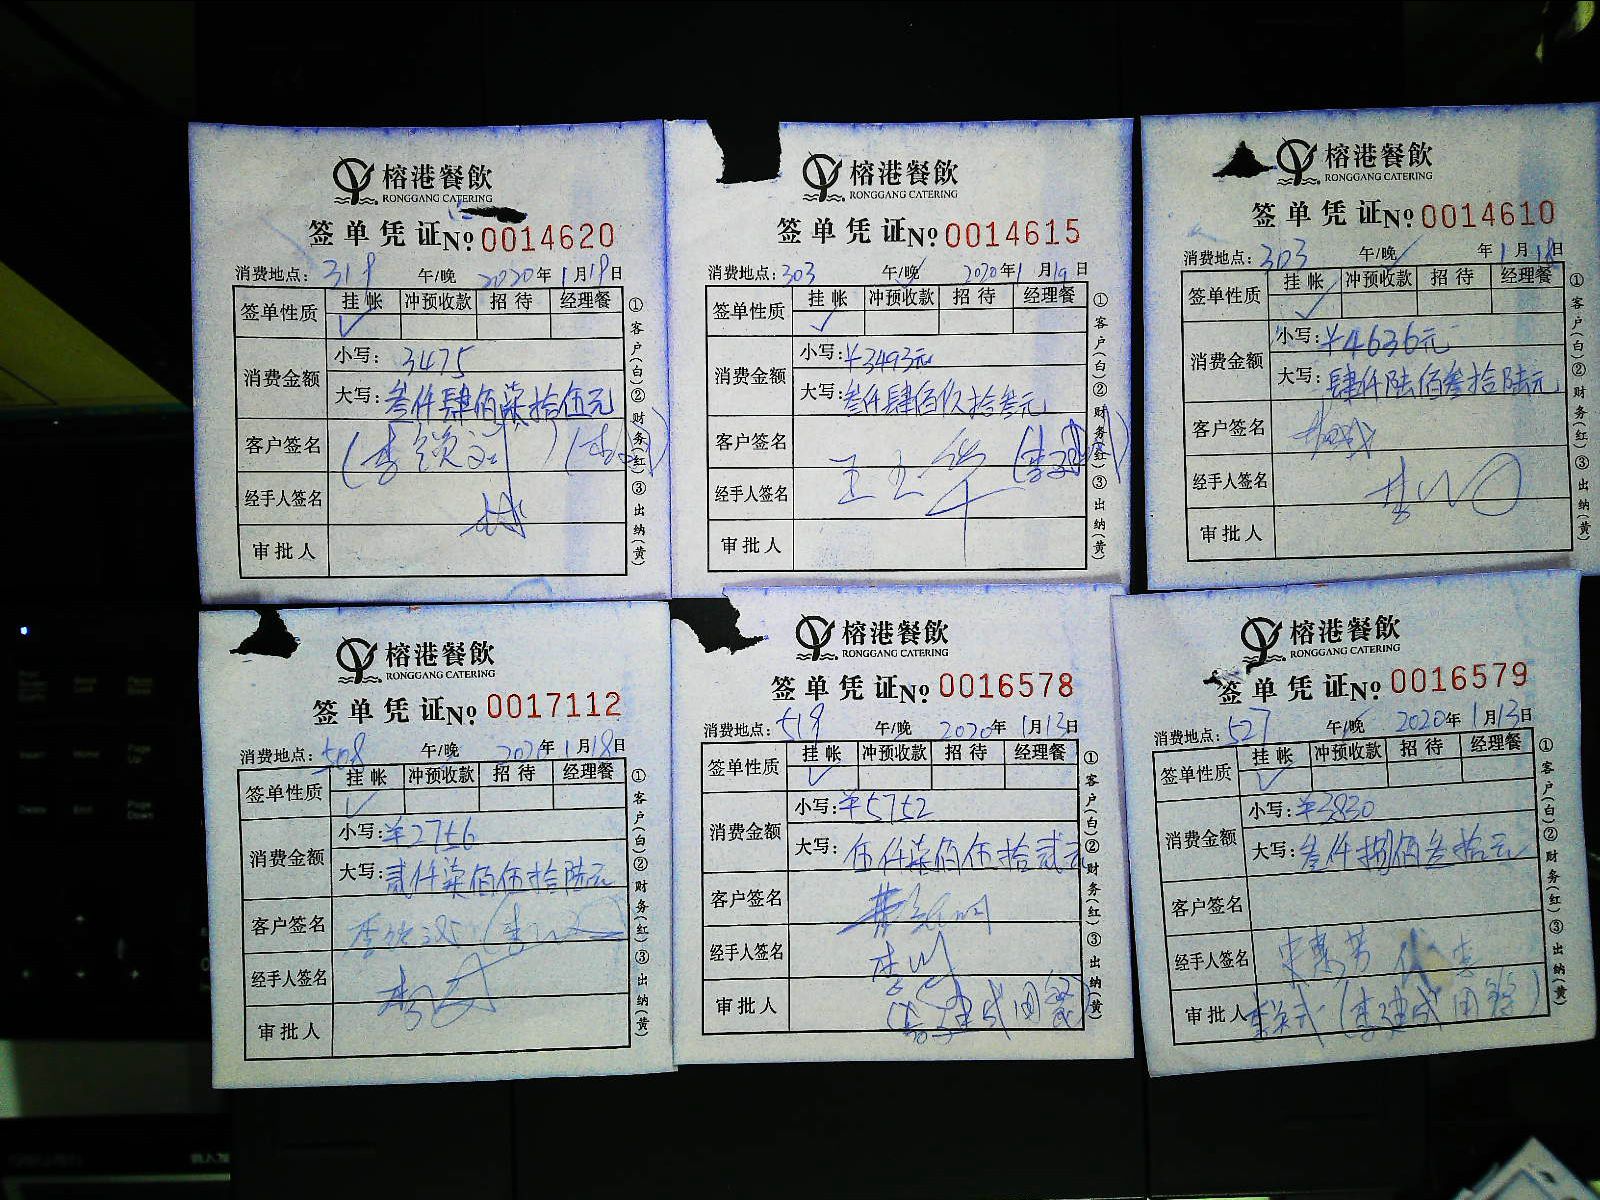 榕港餐飲
RONGGANG CATERING
签单凭证 No 0014620
消费地点: 319 午/晚 2020年1月19日
签单性质 挂帐 冲预收款 招待 经理餐
✓
消费金额 小写: 3475
大写: 叁仟肆佰柒拾伍元
客户签名
经手人签名
审批人
①客户(白)②财务(红)③出纳(黄)
榕港餐飲
RONGGANG CATERING
签单凭证 No 0014615
消费地点: 303 午/晚 2020年1月19日
签单性质 挂帐 冲预收款 招待 经理餐
✓
消费金额 小写: ¥3493元
大写: 叁仟肆佰玖拾叁元
客户签名
经手人签名
审批人
①客户(白)②财务(红)③出纳(黄)
榕港餐飲
RONGGANG CATERING
签单凭证 No 0014610
消费地点: 303 午/晚 年1月18日
签单性质 挂帐 冲预收款 招待 经理餐
✓
消费金额 小写: ¥4636元
大写: 肆仟陆佰叁拾陆元
客户签名
经手人签名
审批人
①客户(白)②财务(红)③出纳(黄)
榕港餐飲
RONGGANG CATERING
签单凭证 No 0017112
消费地点: 508 午/晚 年1月18日
签单性质 挂帐 冲预收款 招待 经理餐
✓
消费金额 小写: ¥2756
大写: 贰仟柒佰伍拾陆元
客户签名
经手人签名
审批人
①客户(白)②财务(红)③出纳(黄)
榕港餐飲
RONGGANG CATERING
签单凭证 No 0016578
消费地点: 519 午/晚 2020年1月13日
签单性质 挂帐 冲预收款 招待 经理餐
✓
消费金额 小写: ¥5752
大写: 伍仟柒佰伍拾贰元
客户签名
经手人签名
审批人
①客户(白)②财务(红)③出纳(黄)
榕港餐飲
RONGGANG CATERING
签单凭证 No 0016579
消费地点: 527 午/晚 2020年1月13日
签单性质 挂帐 冲预收款 招待 经理餐
✓
消费金额 小写: ¥3830
大写: 叁仟捌佰叁拾元
客户签名
经手人签名
审批人 (李建成用餐)
①客户(白)②财务(红)③出纳(黄)